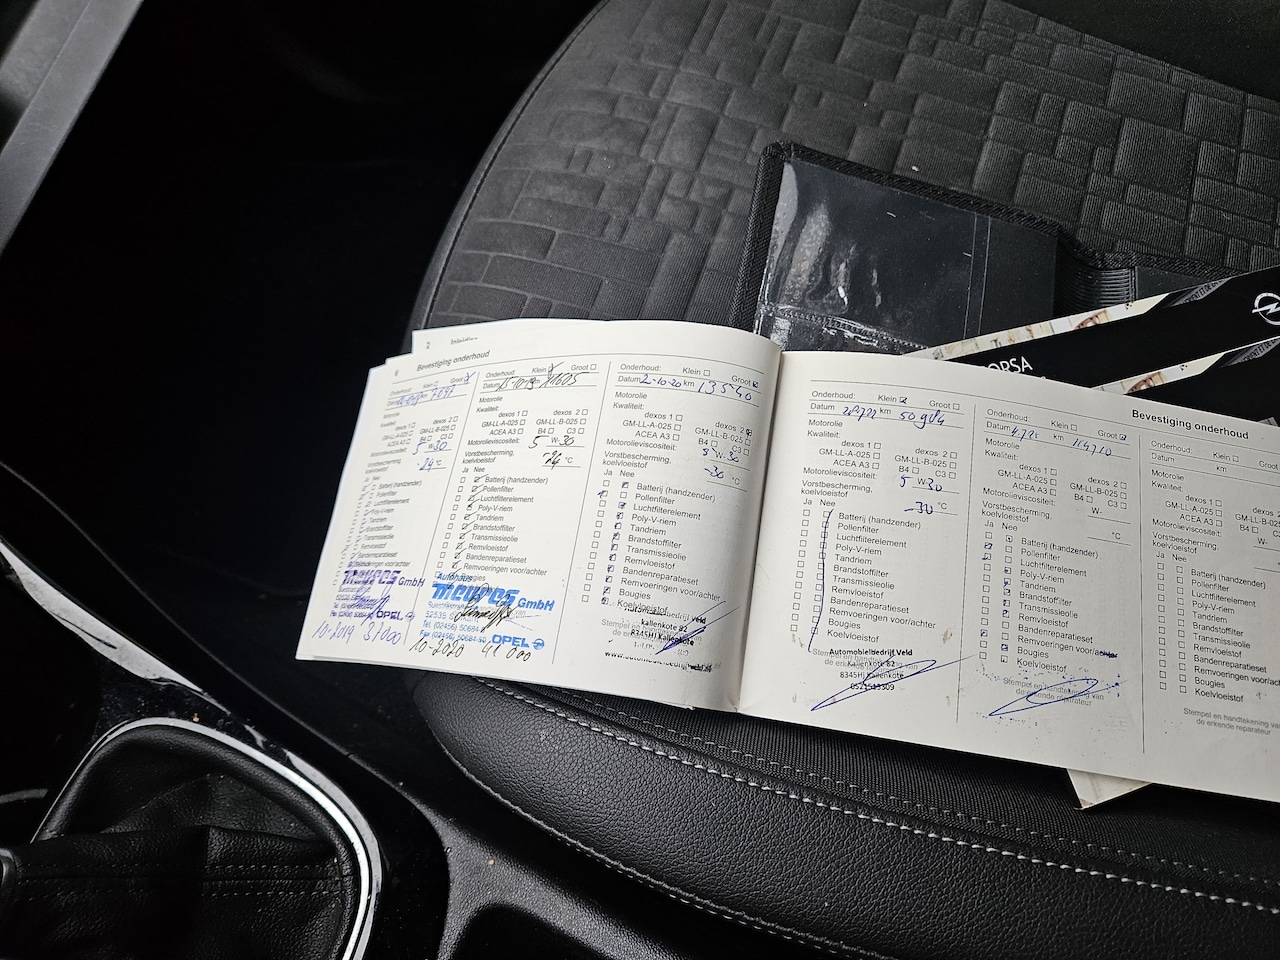 Bevestiging onderhoud
Klein Groot
Motorolie
Kwaliteit:
dexos 1 dexos 2
GM-LL-A-025 GM-LL-B-025
ACEA A3 B4 C3
5 W-30
Vorstbescherming,
koelvloeistof
°C
Ja Nee
Batterij (handzender)
Pollenfilter
Luchtfilterelement
Poly-V-riem
Tandriem
Brandstoffilter
Transmissieolie
Remvloeistof
Bandenreparatieset
Remvoeringen voor/achter
Meures GmbH
OPEL
10-2019
Onderhoud: Klein Groot
Datum 25-10-19 km 11605
Motorolie
Kwaliteit:
dexos 1 dexos 2
GM-LL-A-025 GM-LL-B-025
ACEA A3 B4 C3
Motorolieviscositeit: 5 W-30
Vorstbescherming,
koelvloeistof °C
Ja Nee
Batterij (handzender)
Pollenfilter
Luchtfilterelement
Poly-V-riem
Tandriem
Brandstoffilter
Transmissieolie
Remvloeistof
Bandenreparatieset
Remvoeringen voor/achter
Bougies
Autohaus
Meures GmbH
OPEL
10-2020
Onderhoud: Klein Groot
Datum 2-10-20 km 13540
Motorolie
Kwaliteit:
dexos 1 dexos 2
GM-LL-A-025 GM-LL-B-025
ACEA A3 B4 C3
Motorolieviscositeit: 5 W-30
Vorstbescherming,
koelvloeistof -30 °C
Ja Nee
Batterij (handzender)
Pollenfilter
Luchtfilterelement
Poly-V-riem
Tandriem
Brandstoffilter
Transmissieolie
Remvloeistof
Bandenreparatieset
Remvoeringen voor/achter
Bougies
Koelvloeistof
Kallenkote 82
8345HJ Kallenkote
Onderhoud: Klein Groot
Datum km
Motorolie
Kwaliteit:
dexos 1 dexos 2
GM-LL-A-025 GM-LL-B-025
ACEA A3 B4 C3
Motorolieviscositeit: 5 W30
Vorstbescherming,
koelvloeistof -30 °C
Ja Nee
Batterij (handzender)
Pollenfilter
Luchtfilterelement
Poly-V-riem
Tandriem
Brandstoffilter
Transmissieolie
Remvloeistof
Bandenreparatieset
Remvoeringen voor/achter
Bougies
Koelvloeistof
Automobielbedrijf Veld
Kallenkote 82
8345HJ Kallenkote
Bevestiging onderhoud
Onderhoud: Klein Groot
Datum km
Motorolie
Kwaliteit:
dexos 1 dexos 2
GM-LL-A-025 GM-LL-B-025
ACEA A3 B4 C3
Motorolieviscositeit: W-
Vorstbescherming,
koelvloeistof °C
Ja Nee
Batterij (handzender)
Pollenfilter
Luchtfilterelement
Poly-V-riem
Tandriem
Brandstoffilter
Transmissieolie
Remvloeistof
Bandenreparatieset
Remvoeringen voor/achter
Bougies
Koelvloeistof
Stempel en handtekening van
de erkende reparateur
Onderhoud: Klein
Datum km
Motorolie
Kwaliteit:
dexos 1
GM-LL-A-025
ACEA A3 B4
Motorolieviscositeit:
Vorstbescherming,
koelvloeistof
Ja Nee
Batterij (handzender)
Pollenfilter
Luchtfilterelement
Poly-V-riem
Tandriem
Brandstoffilter
Transmissieolie
Remvloeistof
Bandenreparatieset
Bougies
Koelvloeistof
Stempel en handtekening
de erkende reparateur